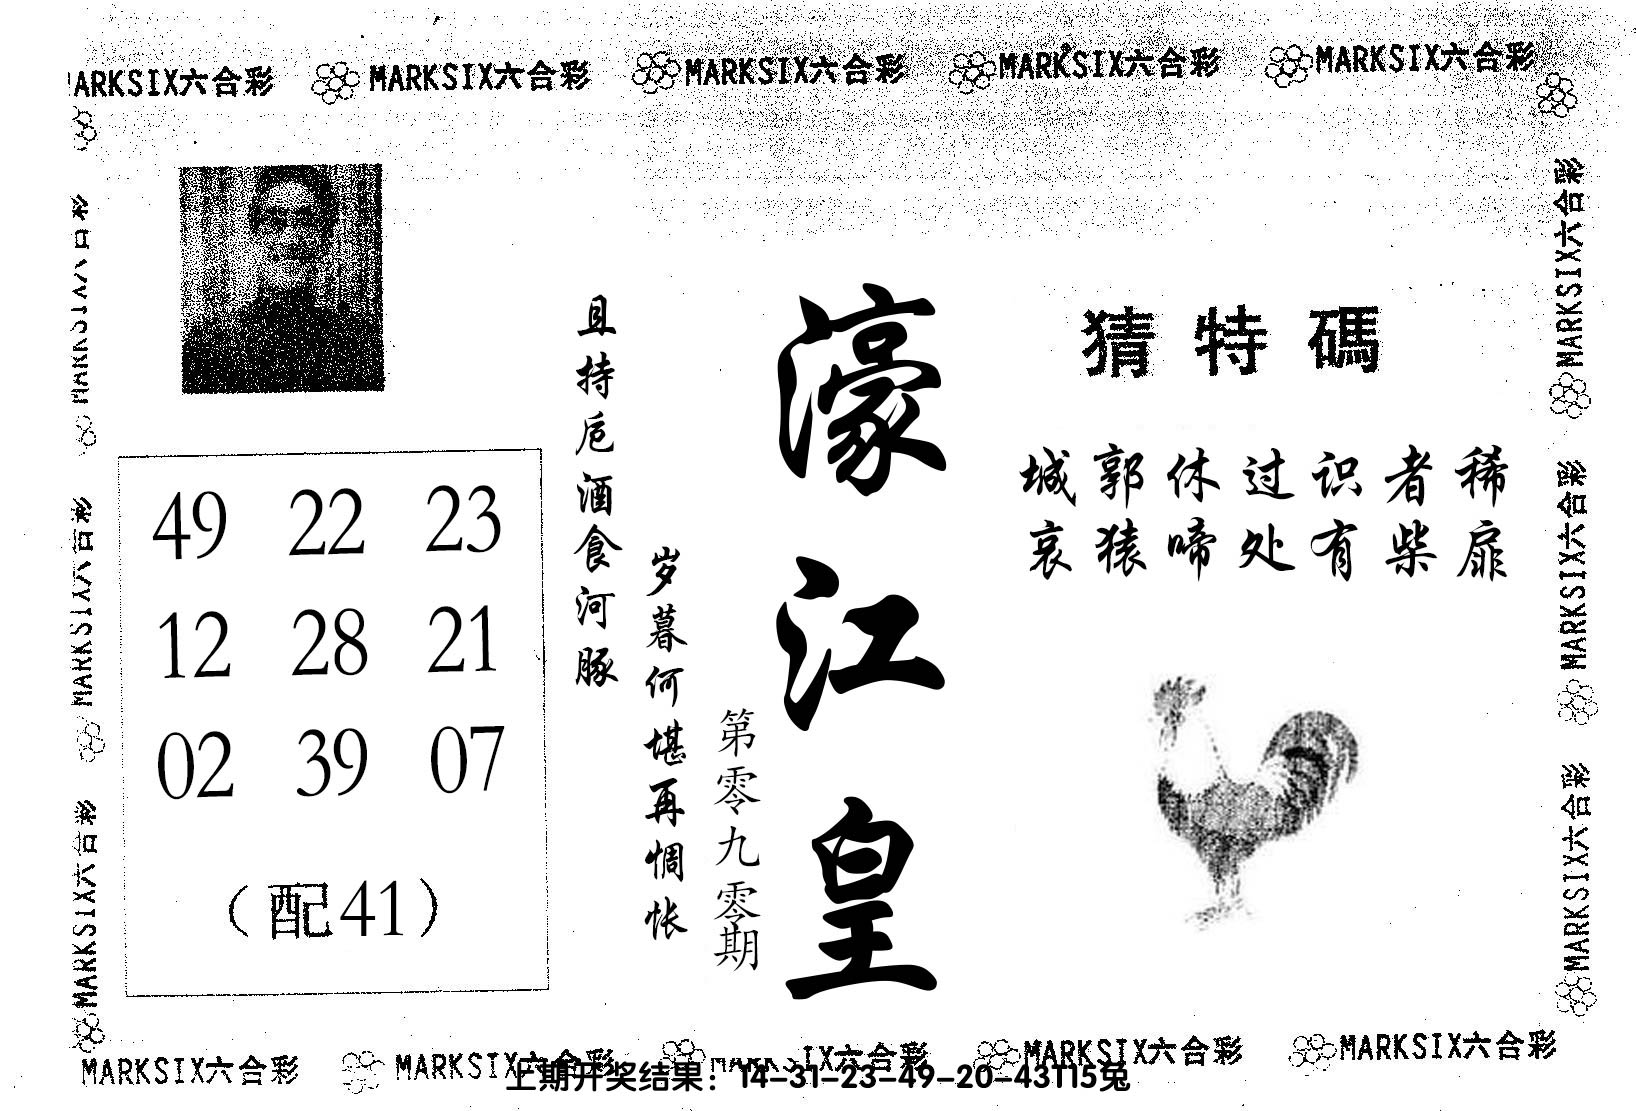 MARKSIX六合彩 MARKSIX六合彩 MARKSIX六合彩 MARKSIX六合彩 MARKSIX六合彩
MARKSIX六合彩
MARKSIX六合彩
MARKSIX六合彩
49 22 23
12 28 21
02 39 07
（配41）
且持卮酒食河豚
岁暮何堪再惆怅
第零九零期
濠江皇
猜特碼
城郭休过识者稀
哀猿啼处有柴扉
MARKSIX六合彩
MARKSIX六合彩
MARKSIX六合彩
MARKSIX六合彩 MARKSIX六合彩 MARKSIX六合彩 MARKSIX六合彩 MARKSIX六合彩
上期开奖结果：14-31-23-49-20-43T15兔